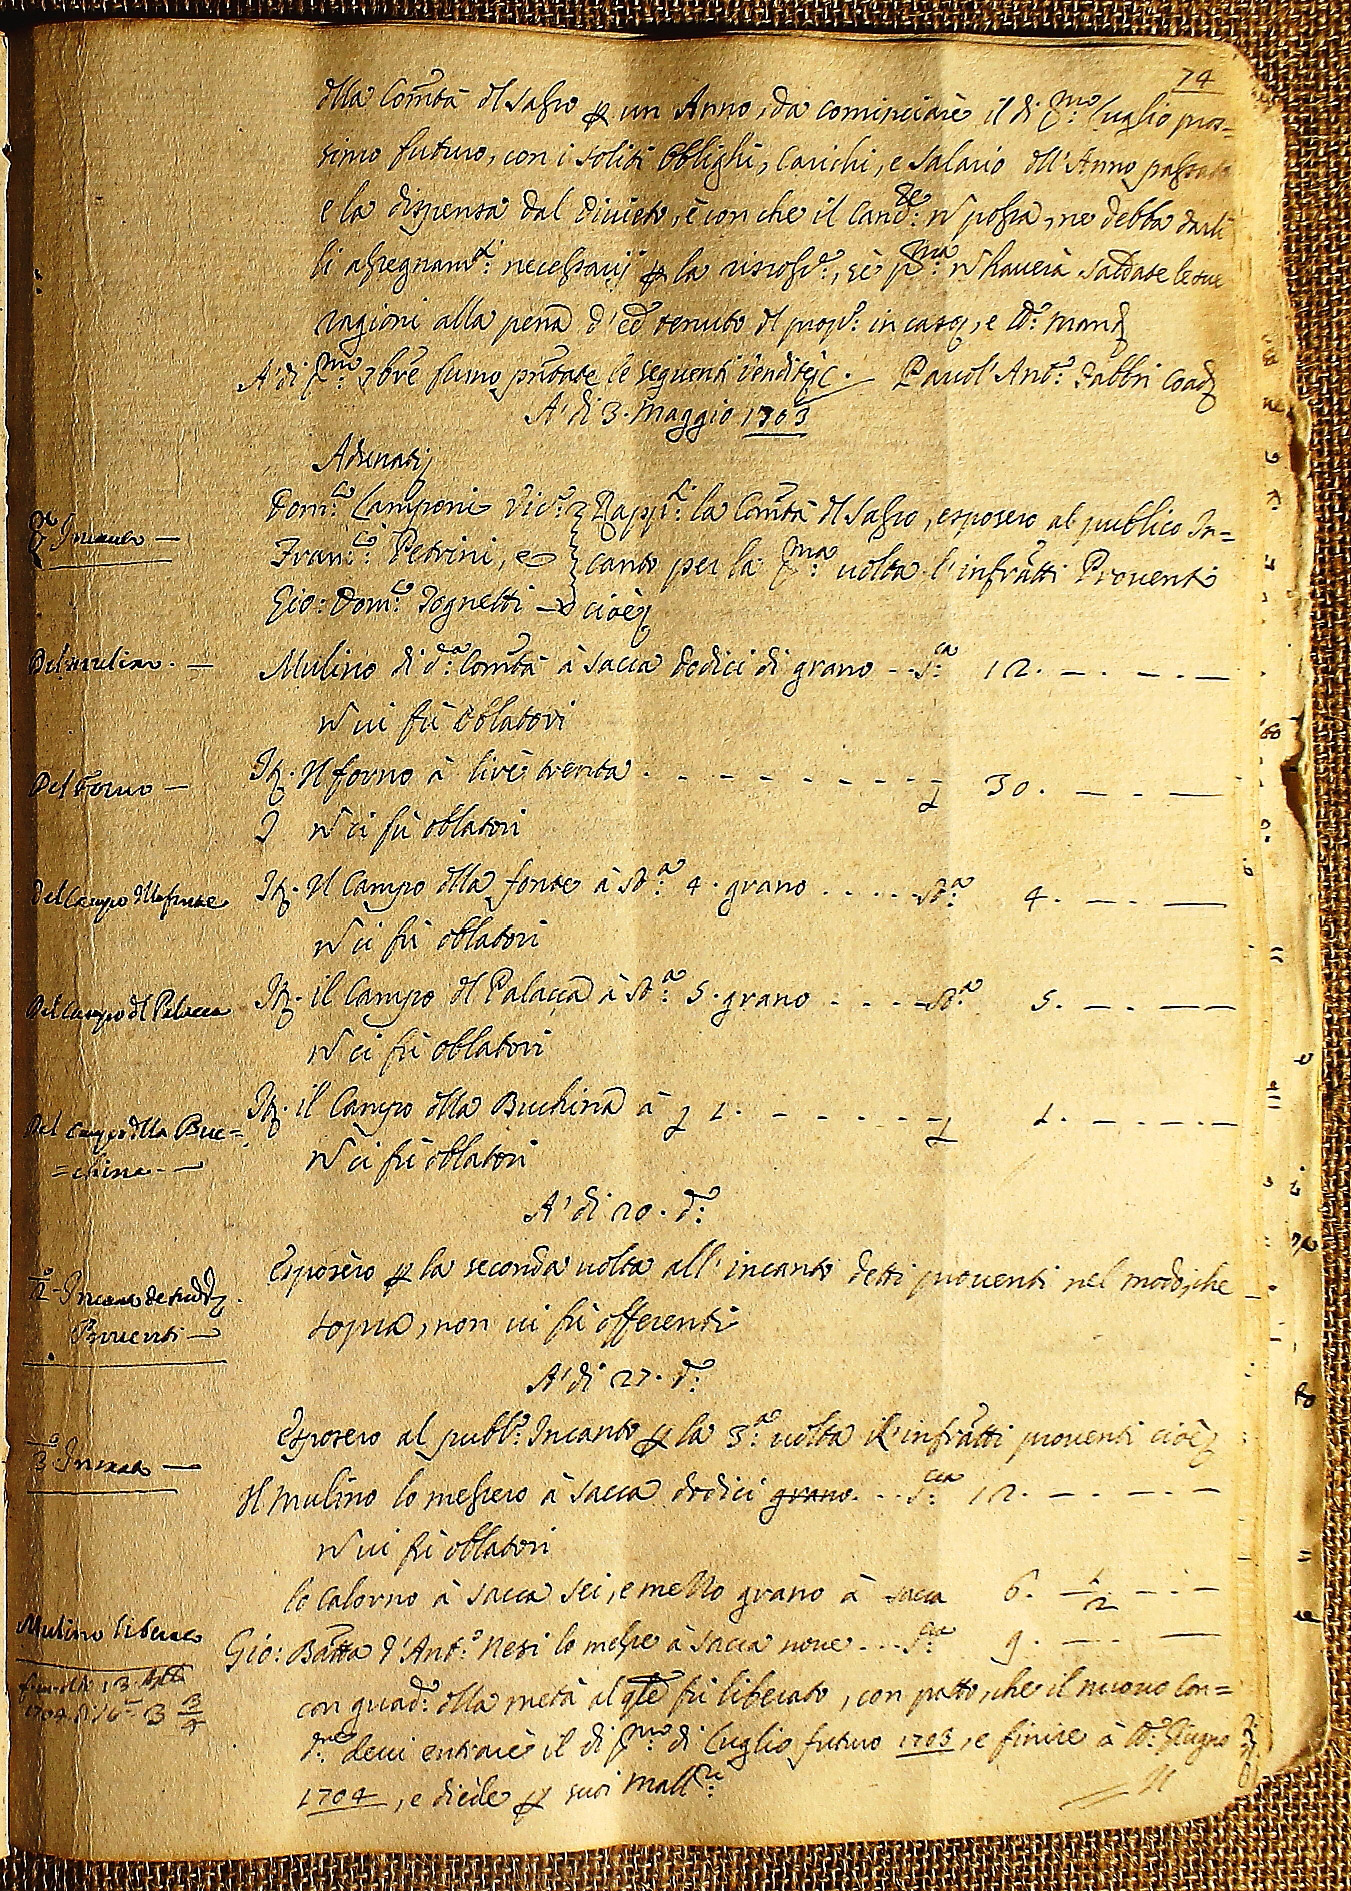 74
dlla Com̃tà dl Sasso ꝑ un Anno, da cominciare il di p.mo Luglio pros=
simo futuro, con i soliti oblighi, Carichi, e salario dll'Anno passato
e la dispensa dal divieto, è con che il Cand.re nõ possa, ne debba darli
li assegnam.ti necessarij ꝑ la riscoss.e, sè p.ma nõ haverà saldate le sue
ragioni alla pena d'eẽ tenuto dl prop.o in caso, e
A' di p.mo 9bre furno pñtate le seguenti rendite Pauol' Ant.o Fabbri
A' di 3. Maggio 1703
Adunati
P.o Incanto —
Dom.co Camponi Vic.o Rapp.ti la Com̃tà dl Sasso, esposero al publico In=
Fran.co Petrini, e canto per la p.ma volta l'infratti Proventi
Gio: Dom.co Tognetti — cioè
Del mulino. —
Mulino di d.a Com̃tà à sacca dodici di grano - - s.ca 12. — . — . —
nõ vi fù oblatori
Del Forno —
It. Il forno à lire trenta . - - - - - - - - £ 30. — - —
nõ ci fù oblatori
Del Campo dlla fonte
It. Il Campo dlla fonte à st.a 4. grano . . . . st.a 4. — . —
nõ ci fù oblatori
Del Campo dl Palacca
It. il Campo dl Palacca à st.a 5. grano - - - - st.a 5. — . —
nõ ci fù oblatori
Del Campo dlla Buc=
=china - —
It. il Campo dlla Bucchina à £ 1. - - - - - - £ 1. — . — . —
nõ ci fù oblatori
A' di 20. d.o
2.o Incanto de sud.i
Proventi —
Esposero ꝑ la seconda volta all'incanto detti proventi nel modo, che
sopra, non vi fù offerenti
A' di 27. d.o
3.o Incanto —
Esposero al pubb.o Incanto ꝑ la 3.a volta l'infratti proventi cioè
Il mulino lo messero à sacca dodici grano. - - s.cca 12. — . — . —
nõ vi fù oblatori
lo calorno à sacca sei, e mezzo grano à sacca 6. 1/2 — . —
Mulino liberato
Gio: Batta d'Ant.o Neri lo messe à sacca nove - - - s.cca 9. — . —
13
1704 3 3/4
con guad.o dlla metà al qle fù liberato, con patto, che il nuovo Con=
d.re devi entrare il di p.mo di Luglio futuro 1703, e finire à Giugno
1704, e diede ꝑ suoi Mall.ri
Il